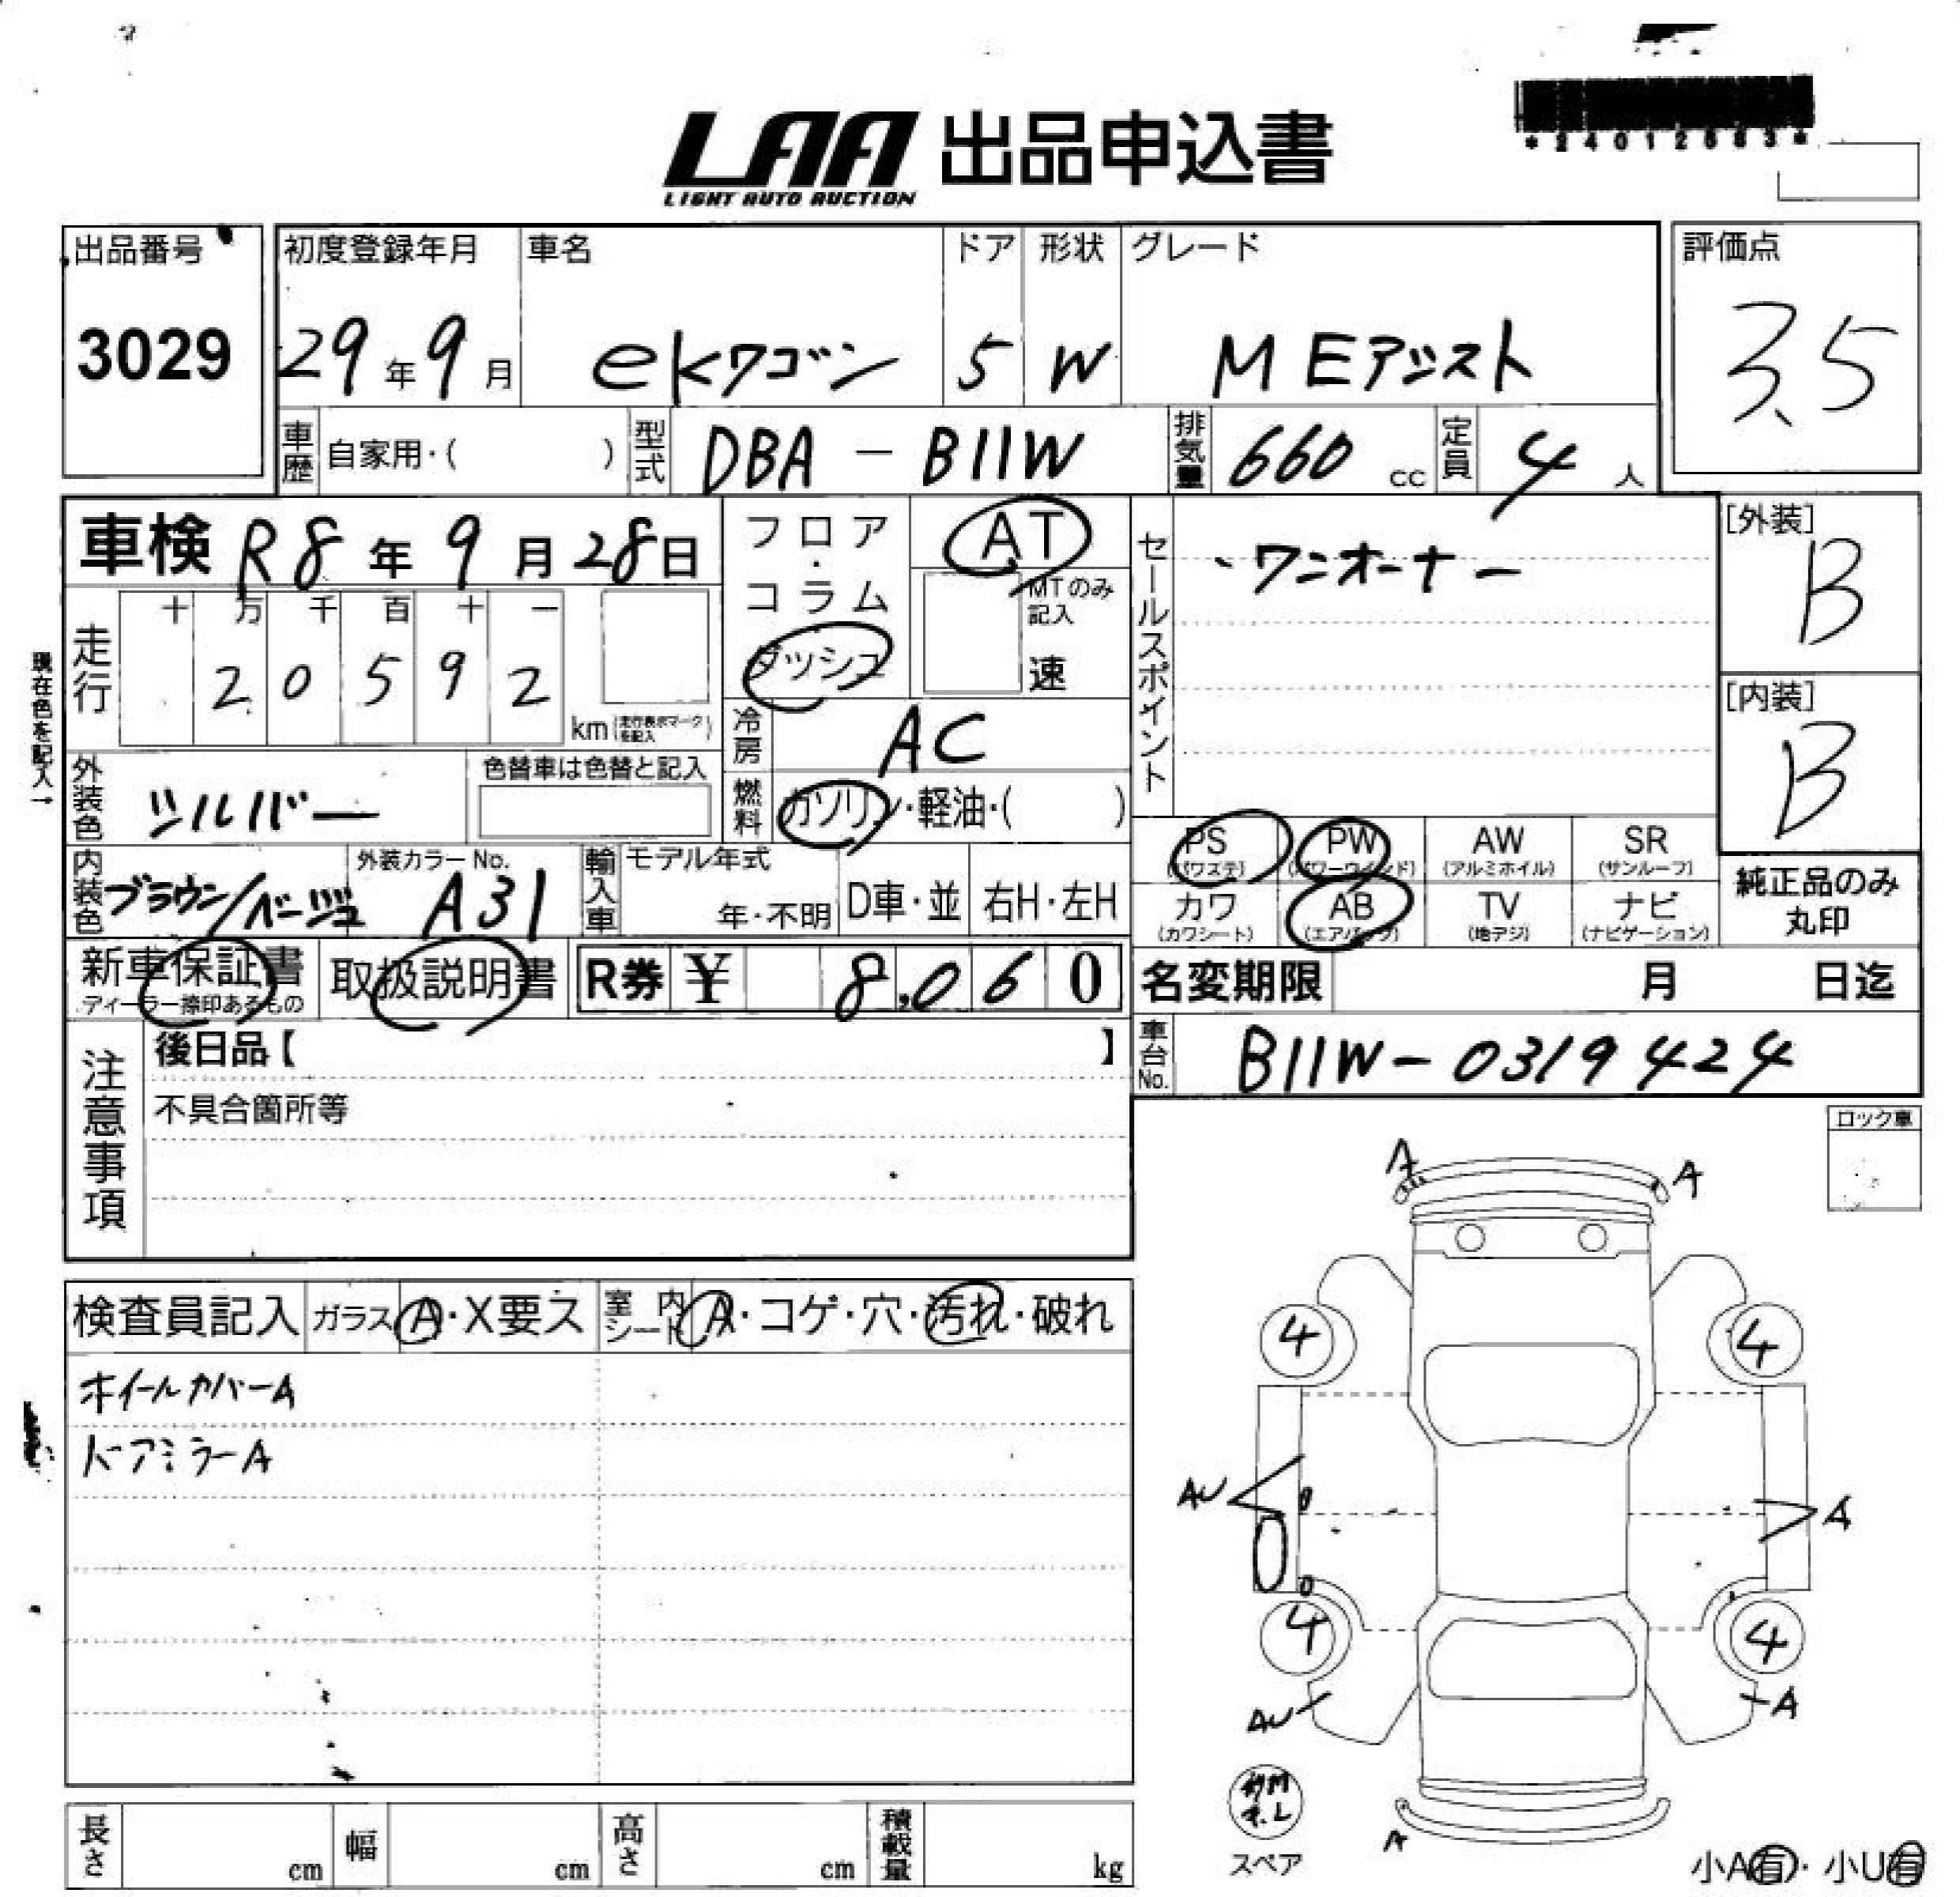 LAA 出品申込書
LIGHT AUTO AUCTION
*24012683*
出品番号
3029
初度登録年月
29年9月
車名
ekワゴン
ドア
5
形状
W
グレード
M Eアシスト
評価点
3.5
車歴 自家用・( )
型式 DBA - B11W
排気量 660 cc
定員 4 人
車検 R8年9月28日
フロア・コラム
ダッシュ
AT
MTのみ記入
速
セールスポイント
・ワンオーナー
[外装]
B
[内装]
B
現在色を記入→
走行
十 万 千 百 十 一
2 0 5 9 2
km (走行表示マークを記入)
冷房 AC
燃料 ガソリン・軽油・( )
外装色 シルバー
色替車は色替と記入
内装色 ブラウン/ベージュ
外装カラーNo.
A31
輸入車
モデル年式
年・不明
D車・並
右H・左H
PS (パワステ)
PW (パワーウインド)
AW (アルミホイル)
SR (サンルーフ)
カワ (カワシート)
AB (エアバック)
TV (地デジ)
ナビ (ナビゲーション)
純正品のみ
丸印
新車保証書
ディーラー捺印あるもの
取扱説明書
R券 ¥ 8,060
名変期限 月 日迄
注意事項
後日品【 】
不具合箇所等
車台No. B11W-0319424
ロック車
検査員記入
ガラス A・X要ス
室内シート A・コゲ・穴・汚れ・破れ
ホイールカバーA
ドアミラーA
A A
4 4
AU A
4 4
AU A
A
スペア
長さ cm
幅 cm
高さ cm
積載量 kg
小A有・小U有